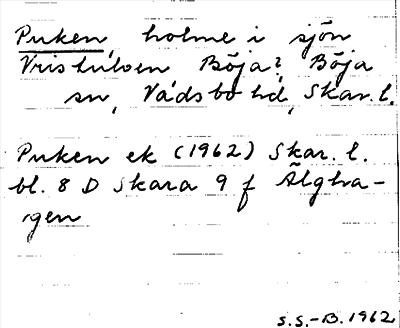 Puken, holme i sjön
Vristulven Böja?, Böja
sn, Vadsbo hd, Skar. l.
Puken ek (1962) Skar. l.
bl. 8 D Skara 9 f Älgha-
gen
S.S.-B. 1962